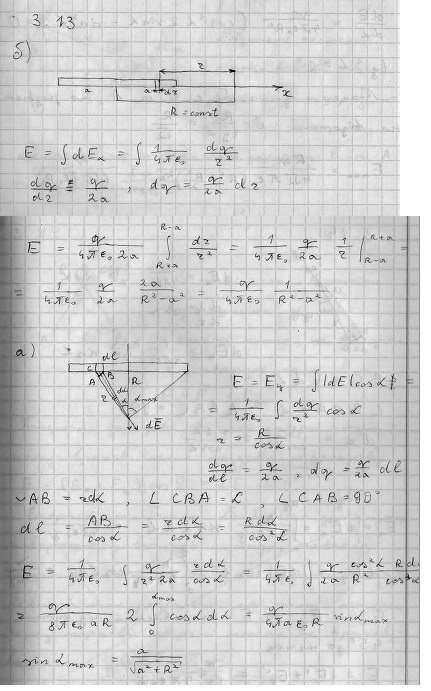 3.13
б)
r
a a dr x
R = const
E = ∫ dEₓ = ∫ 1/4πε₀ dq/r²
dq/dr = q/2a , dq = q/2a dr
E = q/4πε₀ 2a ∫ R-a R+a dr/r² = 1/4πε₀ q/2a 1/r | R+a R-a =
= 1/4πε₀ q/2a 2a/R²-a² = q/4πε₀ 1/R²-a²
а)
dl
C B
A r dα α R αmax
dE
E = E₄ = ∫ |dE| cosα =
= 1/4πε₀ ∫ dq/r² cosα
r = R/cosα
dq/dl = q/2a , dq = q/2a dl
∪AB = rdα , ∠ CBA = α , ∠ CAB = 90°
dl = AB/cosα = rdα/cosα = Rdα/cos²α
E = 1/4πε₀ ∫ q/r² 2a rdα/cosα = 1/4πε₀ ∫ q/2a cos²α/R² Rdα/cos²α
= q/8πε₀ aR 2 ∫ αmax 0 cosα dα = q/4πa ε₀ R sinαmax
sin αmax = a/√a²+R²